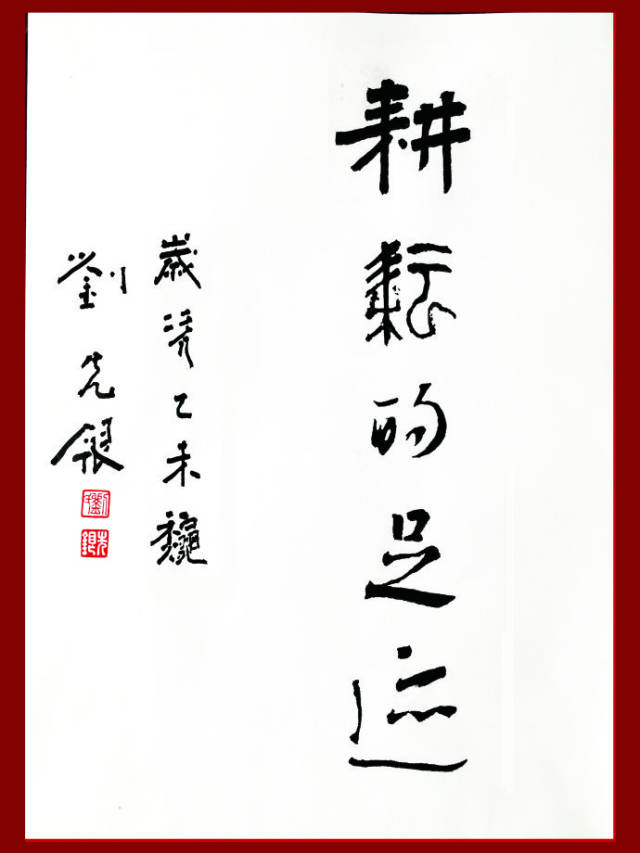 耕耘的足迹
歲次乙未龝
劉先銀